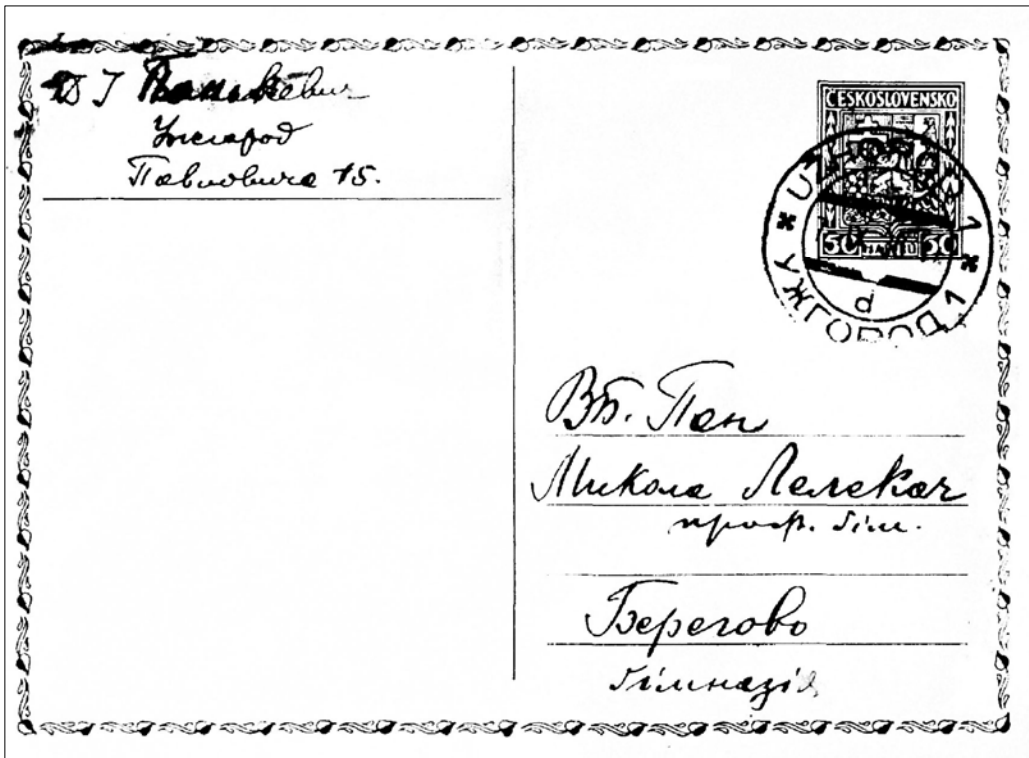 Д І Панькевич
Ужгород
Павловича 15.
ČESKOSLOVENSKO
50 50
УЖГОРОД 1
d
ВБ. Пан
Микола Лелекач
проф. гім.
Берегово
гімназія